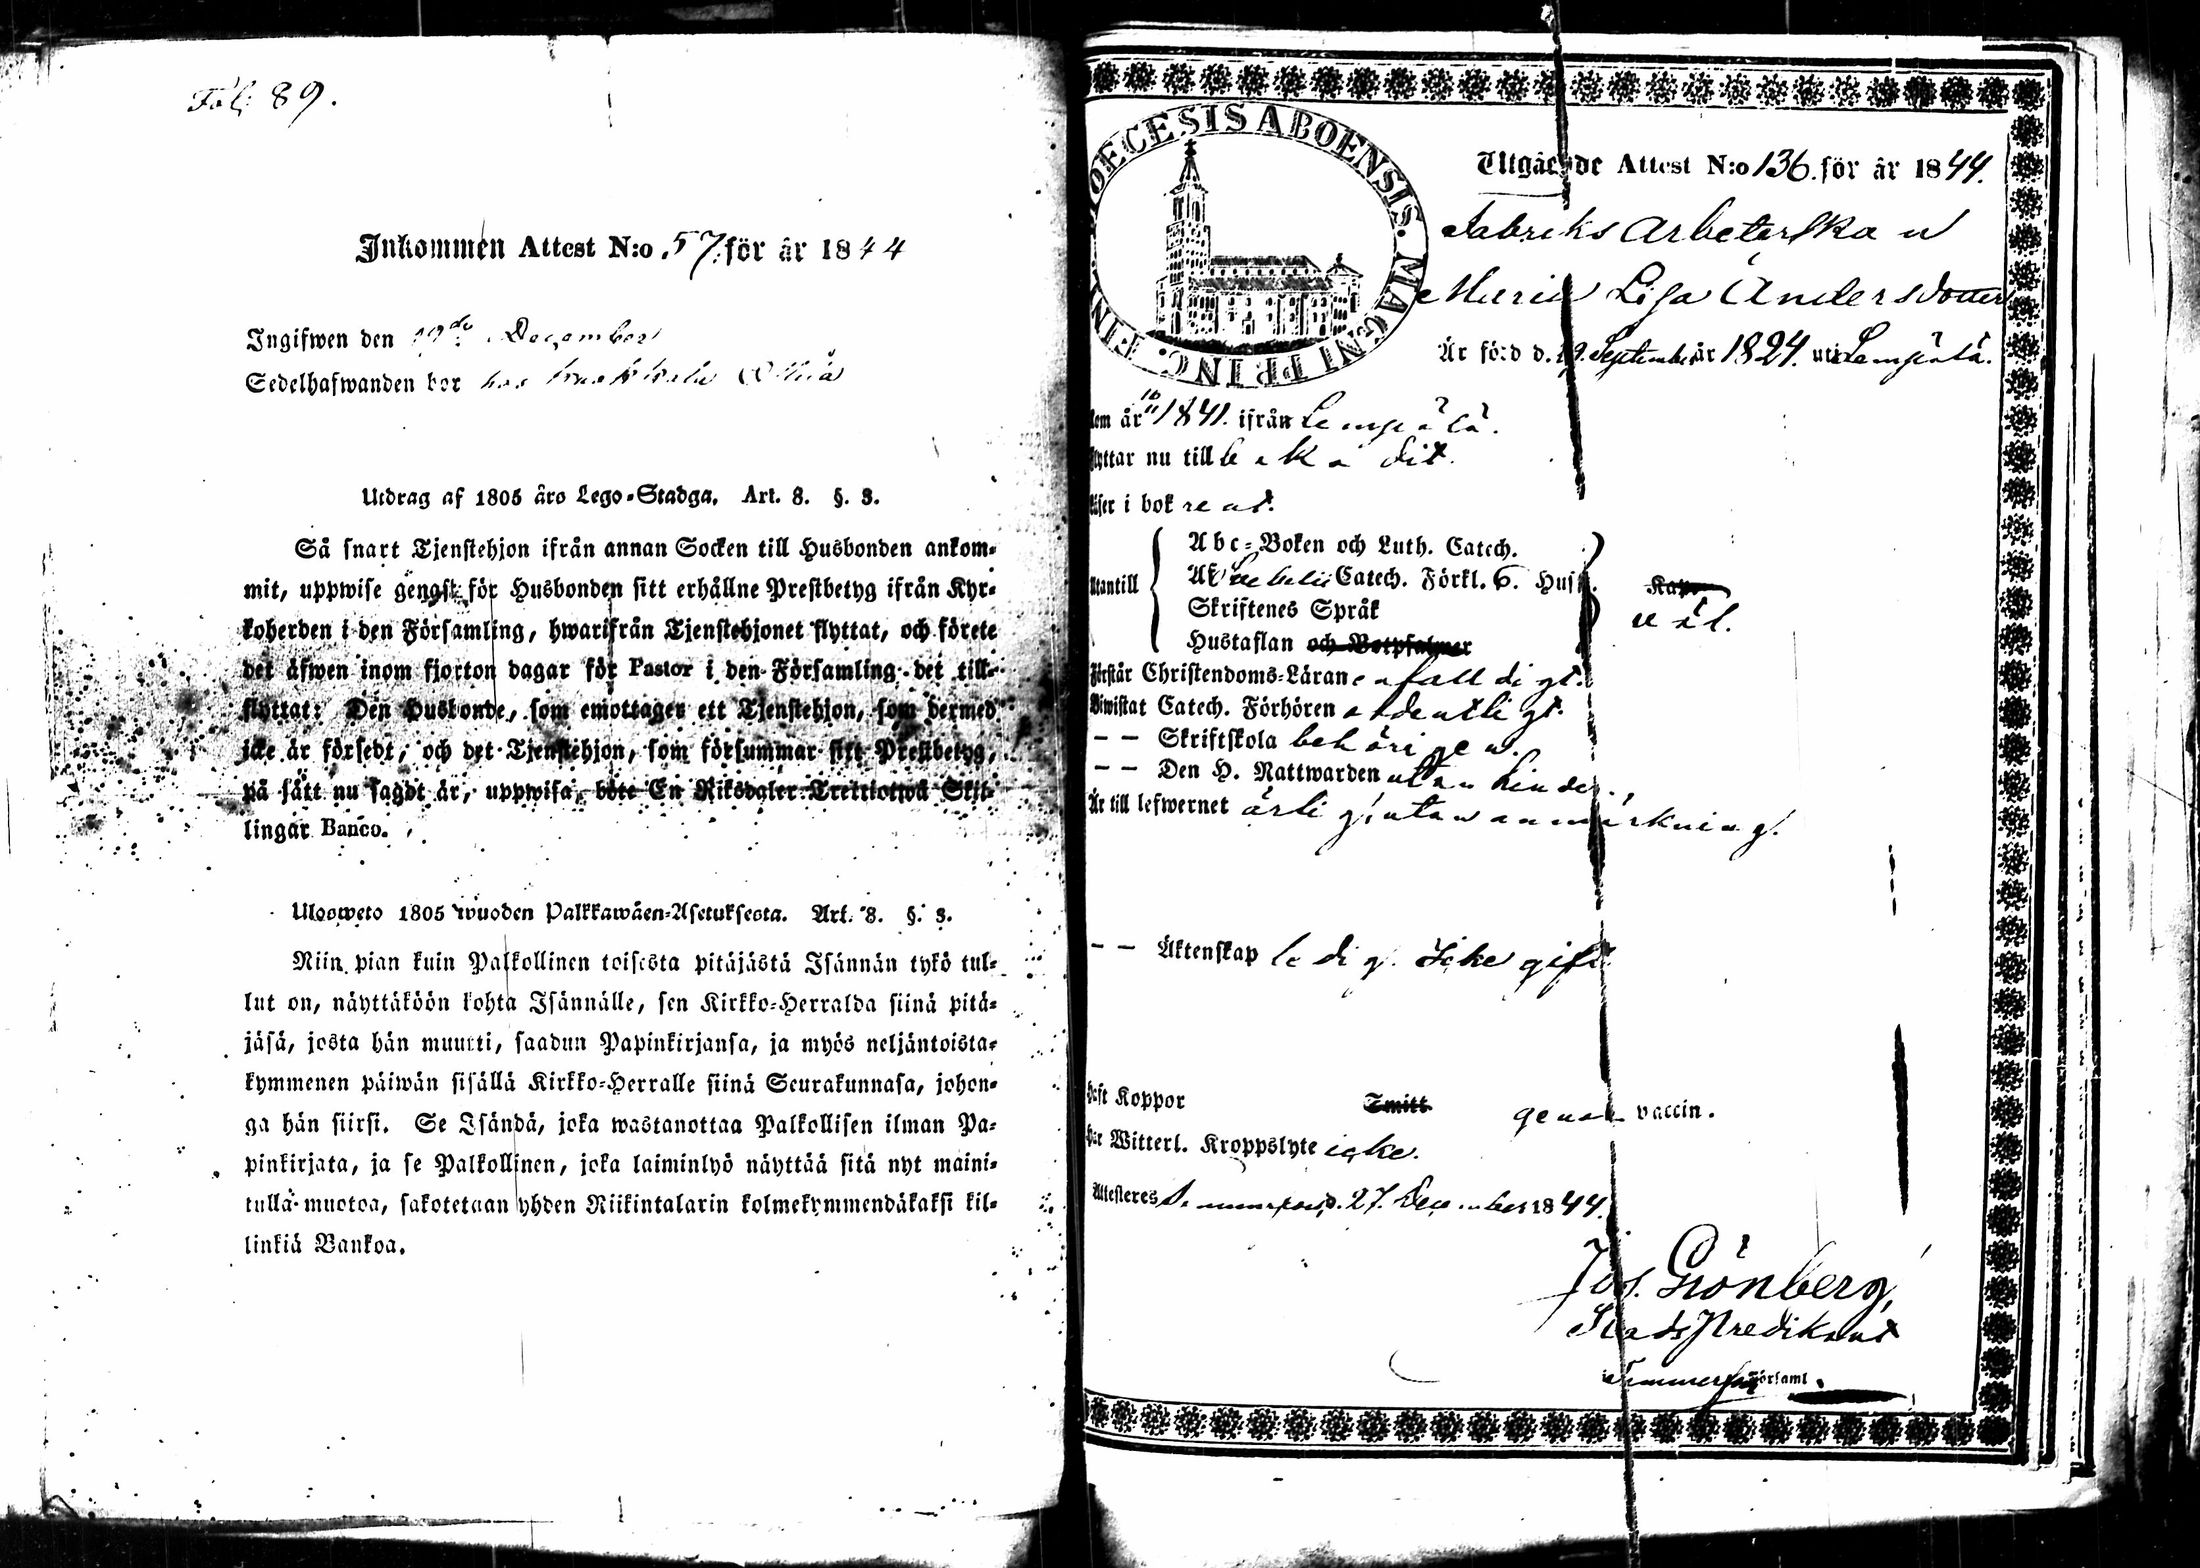 Fol: 89.
Inkommen Attest N:o 57. för år 1844
Ingifwen den December
Sedelhafwanden bor hos
Utdrag af 1805 års Lego-Stadga. Art. 8. §. 3.
Så snart Tjenstehjon ifrån annan Socken till Husbonden ankom-
mit, uppwise gengst för Husbonden sitt erhållne Prestbetyg ifrån Kyr-
koherden i den Församling, hwarifrån Tjenstehjonet flyttat, och förete
det äfwen inom fjorton dagar för Pastor i den Församling det till-
flyttat: Den Husbonde, som emottager ett Tjenstehjon, som dermed
icke är försedt, och det Tjenstehjon, som försummar sitt Prestbetyg,
på sätt nu sagdt är, uppwisa, böte En Riksdaler Trettiotwå Skil-
lingar Banco.
Ulosweto 1805 wuoden Palkkawäen-Asetuksesta. Art. 8. §. 3.
Niin pian kuin Palkollinen toisesta pitäjästä Isännän tykö tul-
lut on, näyttäköön kohta Isännälle, sen Kirkko-Herralda siinä pitä-
jäsä, josta hän muutti, saadun Papinkirjansa, ja myös neljäntoista-
kymmenen päiwän sisällä Kirkko-Herralle siinä Seurakunnasa, johon-
ga hän siirsi. Se Isändä, joka wastanottaa Palkollisen ilman Pa-
pinkirjata, ja se Palkollinen, joka laiminlyö näyttää sitä nyt maini-
tullä muotoa, sakotetaan yhden Riikintalarin kolmekymmendäkaksi kil-
linkiä Bankoa.
DIOECESIS ABOENSIS. MAGNI PRINC. FIN.
Utgående Attest N:o 136. för år 1844.
Fabriks Arbeterskan
Maria Lisa Andersdotter
Är född d. 29. September år 1824. uti Lempälä.
Kom år 1841. ifrån Lempälä.
Flyttar nu till baka dit.
Läser i bok rent.
Utantill
Abc-Boken och Luth. Catech.
Af Sebelii Catech. Förkl. 6. Huf
Skriftenes Språk
Hustaflan och Botpsalmer
wäl.
Förstår Christendoms-Läran enfalldigt.
Biwistat Catech. Förhören ordentligt.
— — Skriftskola behörigen.
— — Den H. Nattwarden utan hinder.
Är till lefwernet ärlig, utan anmärkning.
— — Äktenskap ledig. Icke gift.
Haft Koppor Smitt genom vaccin.
Har Witterl. Kroppslyte icke.
Attesteres Tammerfors d. 27. December 1844.
Jos. Grönberg,
Stads Predikant
Tammerfors Församl.